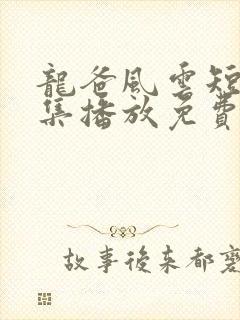 龍爸風雲短
集播放免費
故事後来都